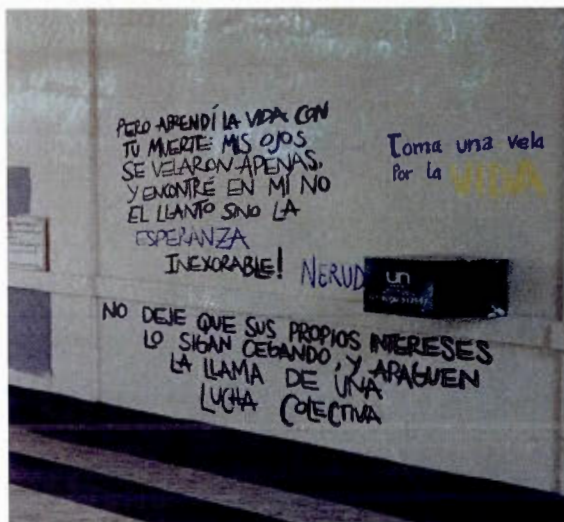 PERO APRENDÍ LA VIDA CON
TU MUERTE: MIS OJOS
SE VELARON APENAS,
Y ENCONTRÉ EN MÍ NO
EL LLANTO SINO LA
ESPERANZA
INEXORABLE! NERUD
Toma una vela
Por la VIDA
un
NO DEJE QUE SUS PROPIOS INTERESES
LO SIGAN CEGANDO, Y APAGUEN
LA LLAMA DE UNA
LUCHA COLECTIVA